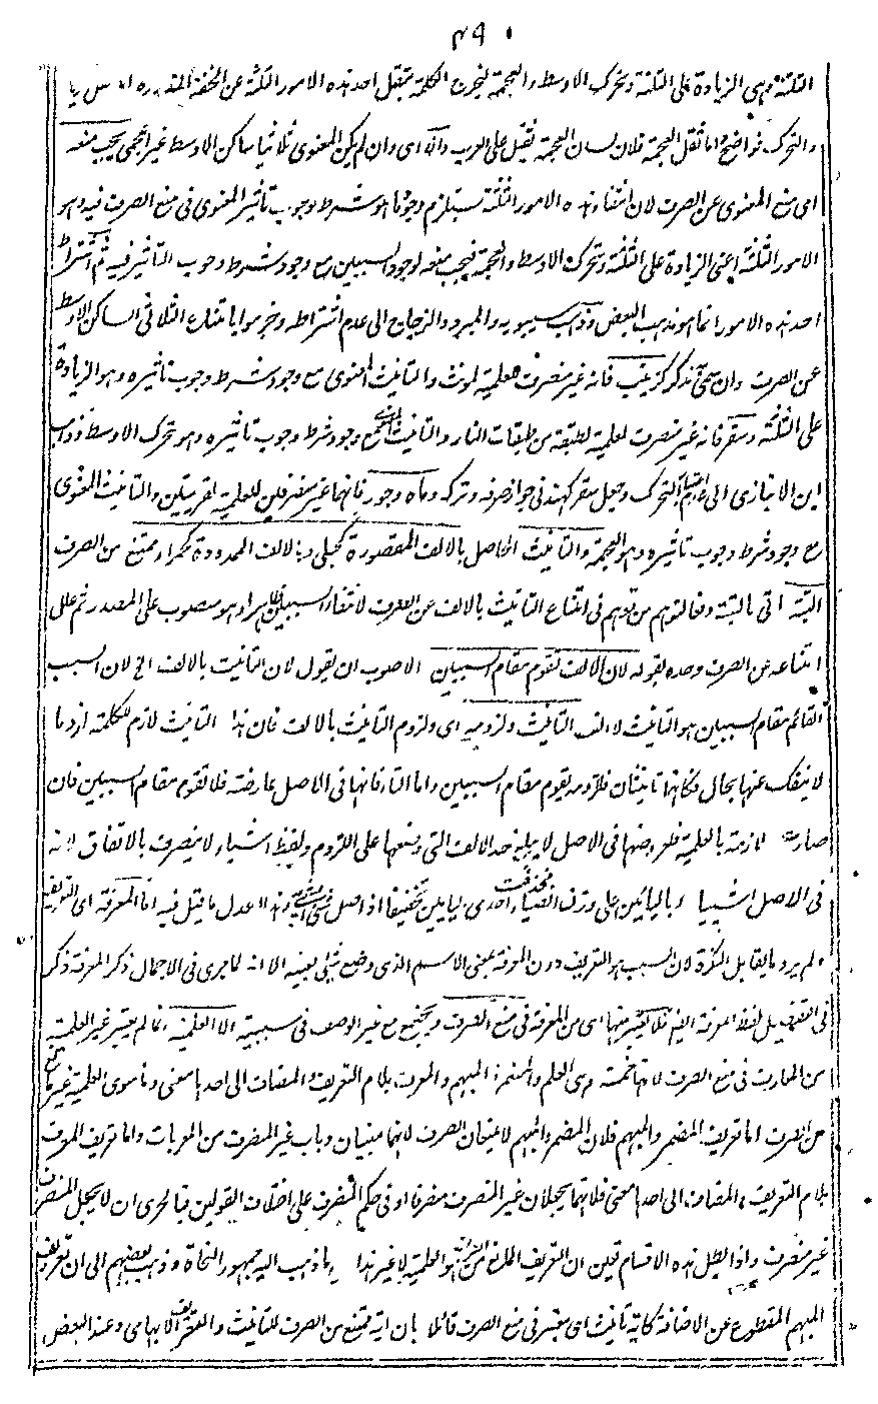 ٤٩
الثلثة وهي الزيادة على الثلثة وتحرك الاوسط والعجمة ليخرج الكلمة بثقل احد هذه الامور الثلثة عن الخفة
والتحرك فواضح واما ثقل العجمة فلان لسان العجمة ثقيل على العرب والا اى وان لم يكن المعنوى ثلاثيا ساكن الاوسط غير اعجمى يجب منعه
اى منع المعنوى عن الصرف لان انتفاء هذه الامور الثلثة يستلزم وجود ما هو شرط وجوب تاثير المعنوى فى منع الصرف فيه وهو
الامور الثلثة اعنى الزيادة على الثلثة وتحرك الاوسط والعجمة فيجب منعه لوجود السببين مع وجود شرط وجوب التأثير فيه ثم اشتراط
احد هذه الامور انما هو مذهب البعض وذهب سيبويه والمبرد والزجاج الى عدم اشتراطه وجزموا بامتناع الثلاثى الساكن الاوسط
عن الصرف وان سمى به مذكر كزينب فانه غير منصرف للعلمية لمونث والتانيث المعنوى مع وجود شرط وجوب تاثيره وهو الزيادة
على الثلثة وسقر فانه غير منصرف لعلمية لطبقة من طبقات النار والتانيث المعنوى مع وجود شرط وجوب تاثيره وهو تحرك الاوسط وذهب
ابن الانبارى الى عدم اعتبار التحرك وجعل سقر كهند فى جواز صرفه وتركه وماه وجور فانهما غير منصرفين للعلمية لقريتين والتانيث المعنوى
مع وجود شرط وجوب تاثيره وهو العجمة والتانيث الحاصل بالالف المقصورة كحبلى وبالالف الممدودة كحمراء ممتنع من الصرف
البتة اتى بالبتة دفعا لتوهم من توهم فى امتناع التانيث بالالف عن الصرف لانتفاء السببين ظاهرا وهو منصوب على المصدر ثم علل
امتناعه عن الصرف وحده بقوله لان الالف تقوم مقام السببين الاصوب ان يقول لان التانيث بالالف الخ لان السبب
القائم مقام السببين هو التانيث لا الف التانيث ولزومه اى ولزوم التانيث بالالف فان هذا التانيث لازم للكلمة لزوما
لا ينفك عنها بحال فكانها تانيثان فلزومه يقوم مقام السببين واما التاء فانها فى الاصل عارضة فلا تقوم مقام السببين فان
صارت لازمة بالعلمية فلعروضها فى الاصل لا يبلغ حد الالف التى وضعها على اللزوم ولفظ اشياء لا ينصرف بالاتفاق لانه
فى الاصل اشييا بالياءين على وزن اصدقاء فحذفت احدى اليائين تخفيفا اذ اصل وهذا اعدل ما قيل فيه اما المعرفة اى التعريف
ولم يرد ما يقابل النكرة لان السبب هو التعريف دون المعرفة بمعنى الاسم الذى وضع لشئ بعينه الا انه لما جرى فى الاجمال ذكر المعرفة ذكر
فى التفصيل لفظ المعرفة ايضا فلا يعتبر منها اى من المعرفة فى منع الصرف ويجتمع مع غير الوصف فى سببيته الا العلمية انما لم يعتبر غير العلمية
من المعارف فى منع الصرف لانها خمسة وهى العلم والمضمر والمبهم والمعرف بلام التعريف والمضاف الى احدها معنى وما سوى العلمية غير مانع
من الصرف اما تعريف المضمر والمبهم فلان المضمر والمبهم لا يمنعان الصرف لانهما مبنيان وباب غير المنصرف من المعربات واما تعريف المعرف
بلام التعريف والمضاف الى احدها معنى فلانهما يجعلان غير المنصرف منصرفا او فى حكم المنصرف على اختلاف القولين فبالحرى ان لا يجعل المنصرف
غير منصرف واذا بطل هذه الاقسام تعين ان التعريف المانع من الصرف هو العلمية لا غير هذا ما ذهب اليه جمهور النحاة وذهب بعضهم الى ان تعريف
المبهم المقطوع عن الاضافة كاية تانيث اى معتبر فى منع الصرف قائلا بان اية ممتنع من الصرف للتانيث والتعريف الابهامى وعند البعض